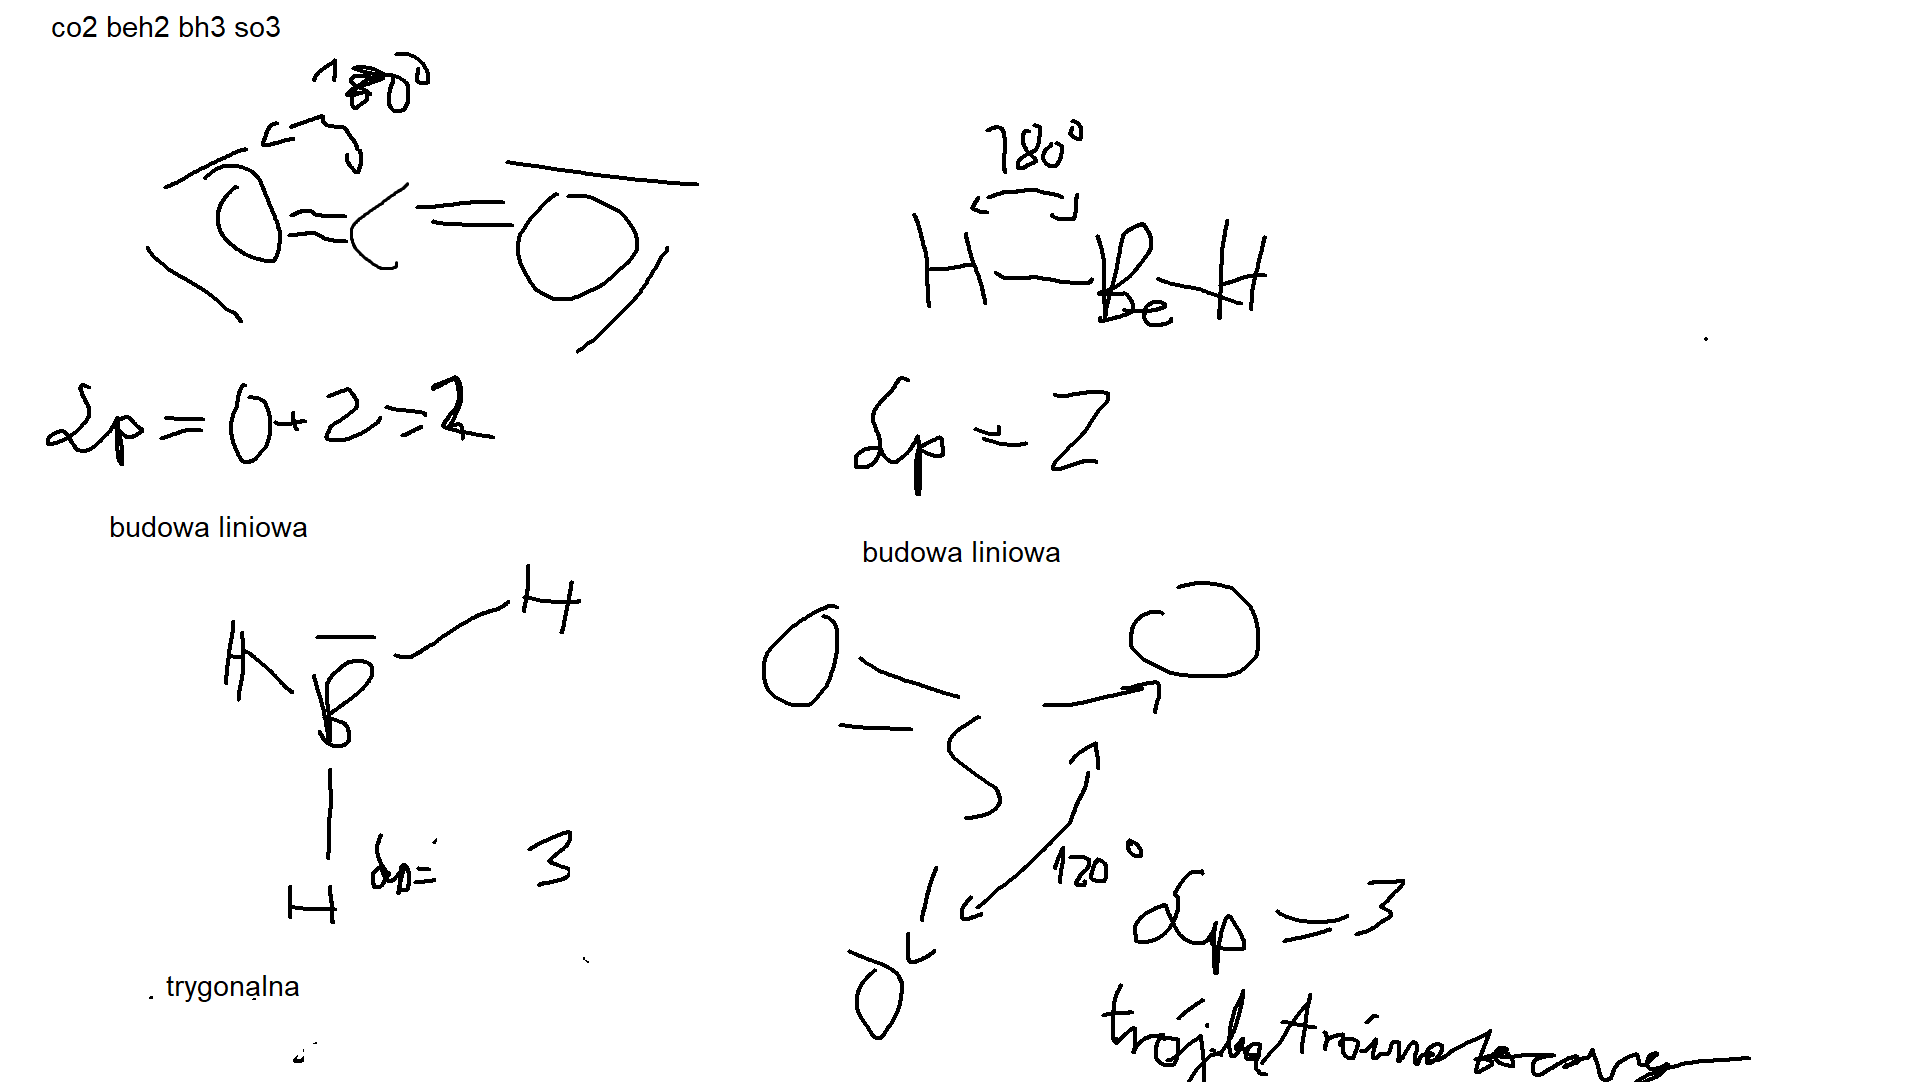 co2 beh2 bh3 so3
180°
O=C=O
Lp = 0+2=2
budowa liniowa
180°
H—Be—H
Lp = 2
budowa liniowa
H B H
H
Lp= 3
trygonalna
O S O
O
120°
Lp = 3
trójkąt równoboczny